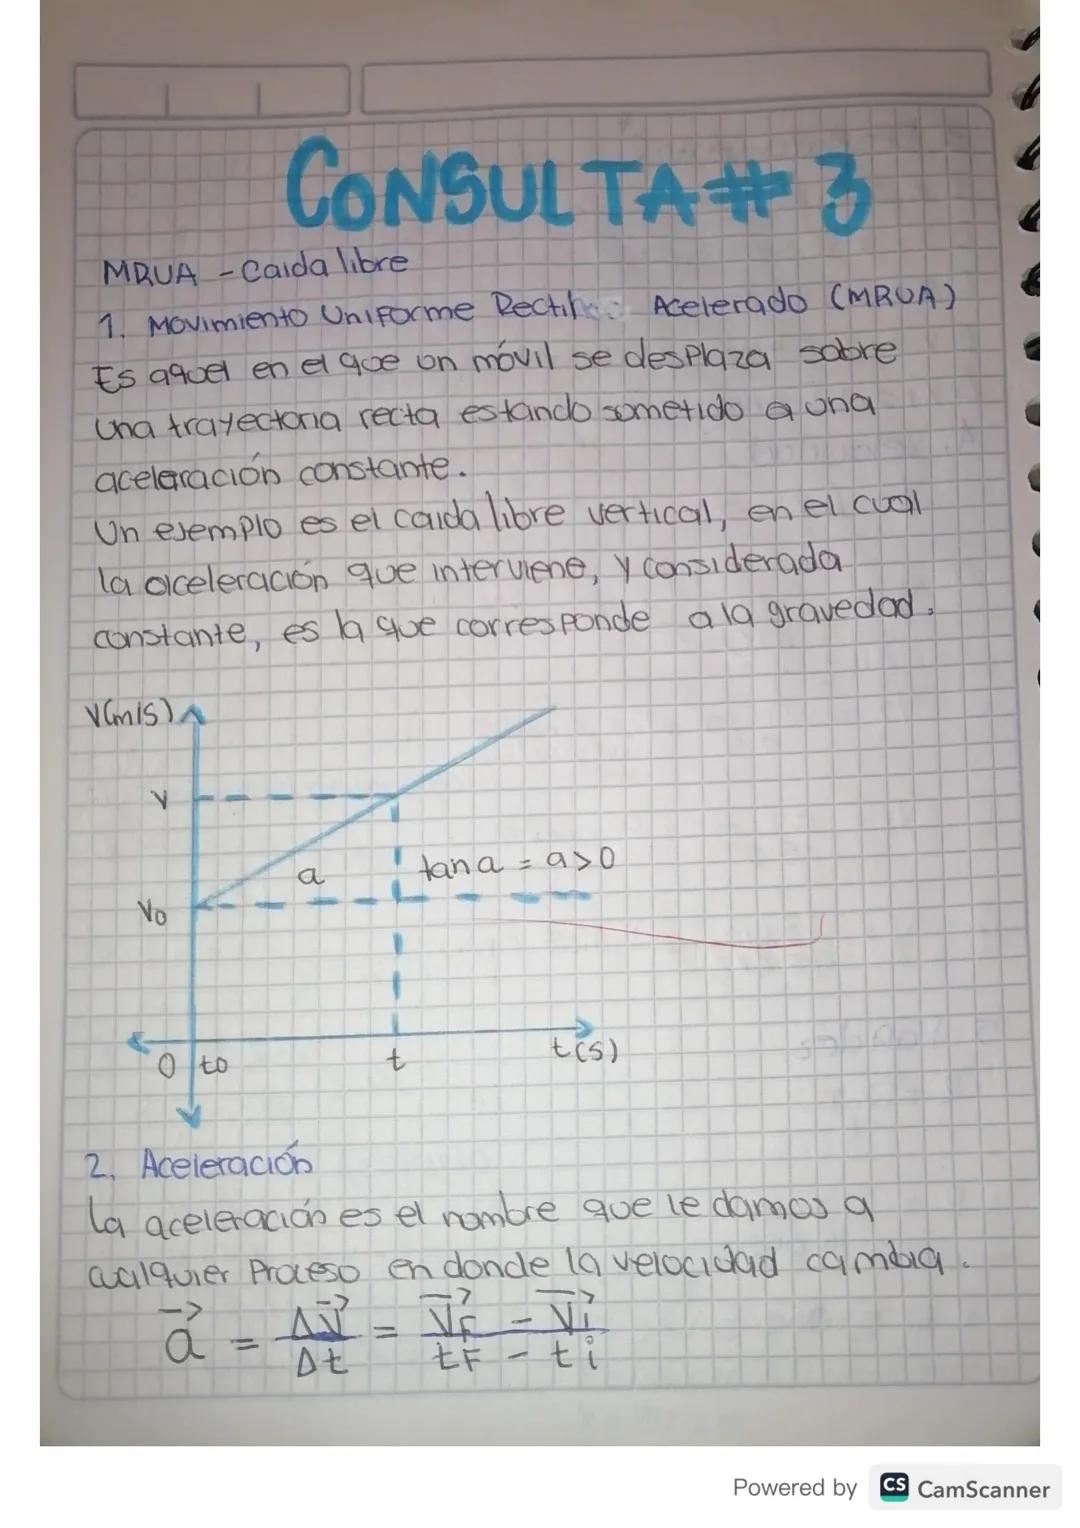 CONSULTA # 3
MRUA - Caida libre
1. Movimiento Uniforme Acelerado (MRUA)
Es aquel en el que un móvil se desplaza sobre
una trayectoria recta estando sometido a una
aceleración constante.
Un ejemplo es el caida libre vertical, en el cual
la aceleración que interviene, y considerada
constante, es la que corresponde a la gravedad.
V(m/s)
V
a
tan a = a > 0
Vo
0 to
t
t(s)
2. Aceleración
La aceleración es el nombre que le damos a
cualquier Proceso en donde la velocidad cambia.
a⃗ = ΔV⃗/Δt = V⃗F - V⃗i/tF - ti
Powered by CS CamScanner